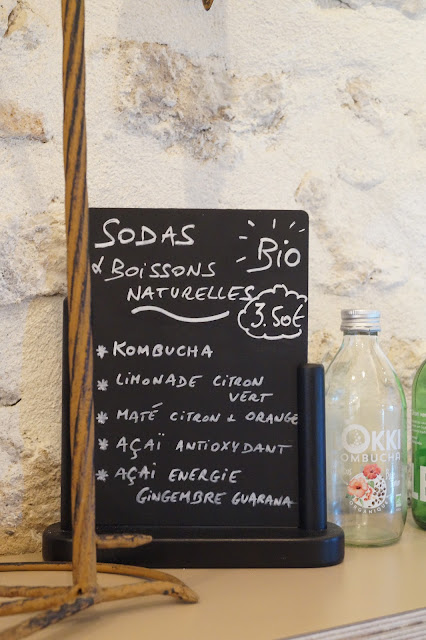 SODAS
& BOISSONS
NATURELLES
Bio
3.50€
* KOMBUCHA
* LIMONADE CITRON
VERT
* MATÉ CITRON & ORANGE
* AÇAÏ ANTIOXYDANT
* AÇAÏ ENERGIE
GINGEMBRE GUARANA
OKKI
OMBUCHA